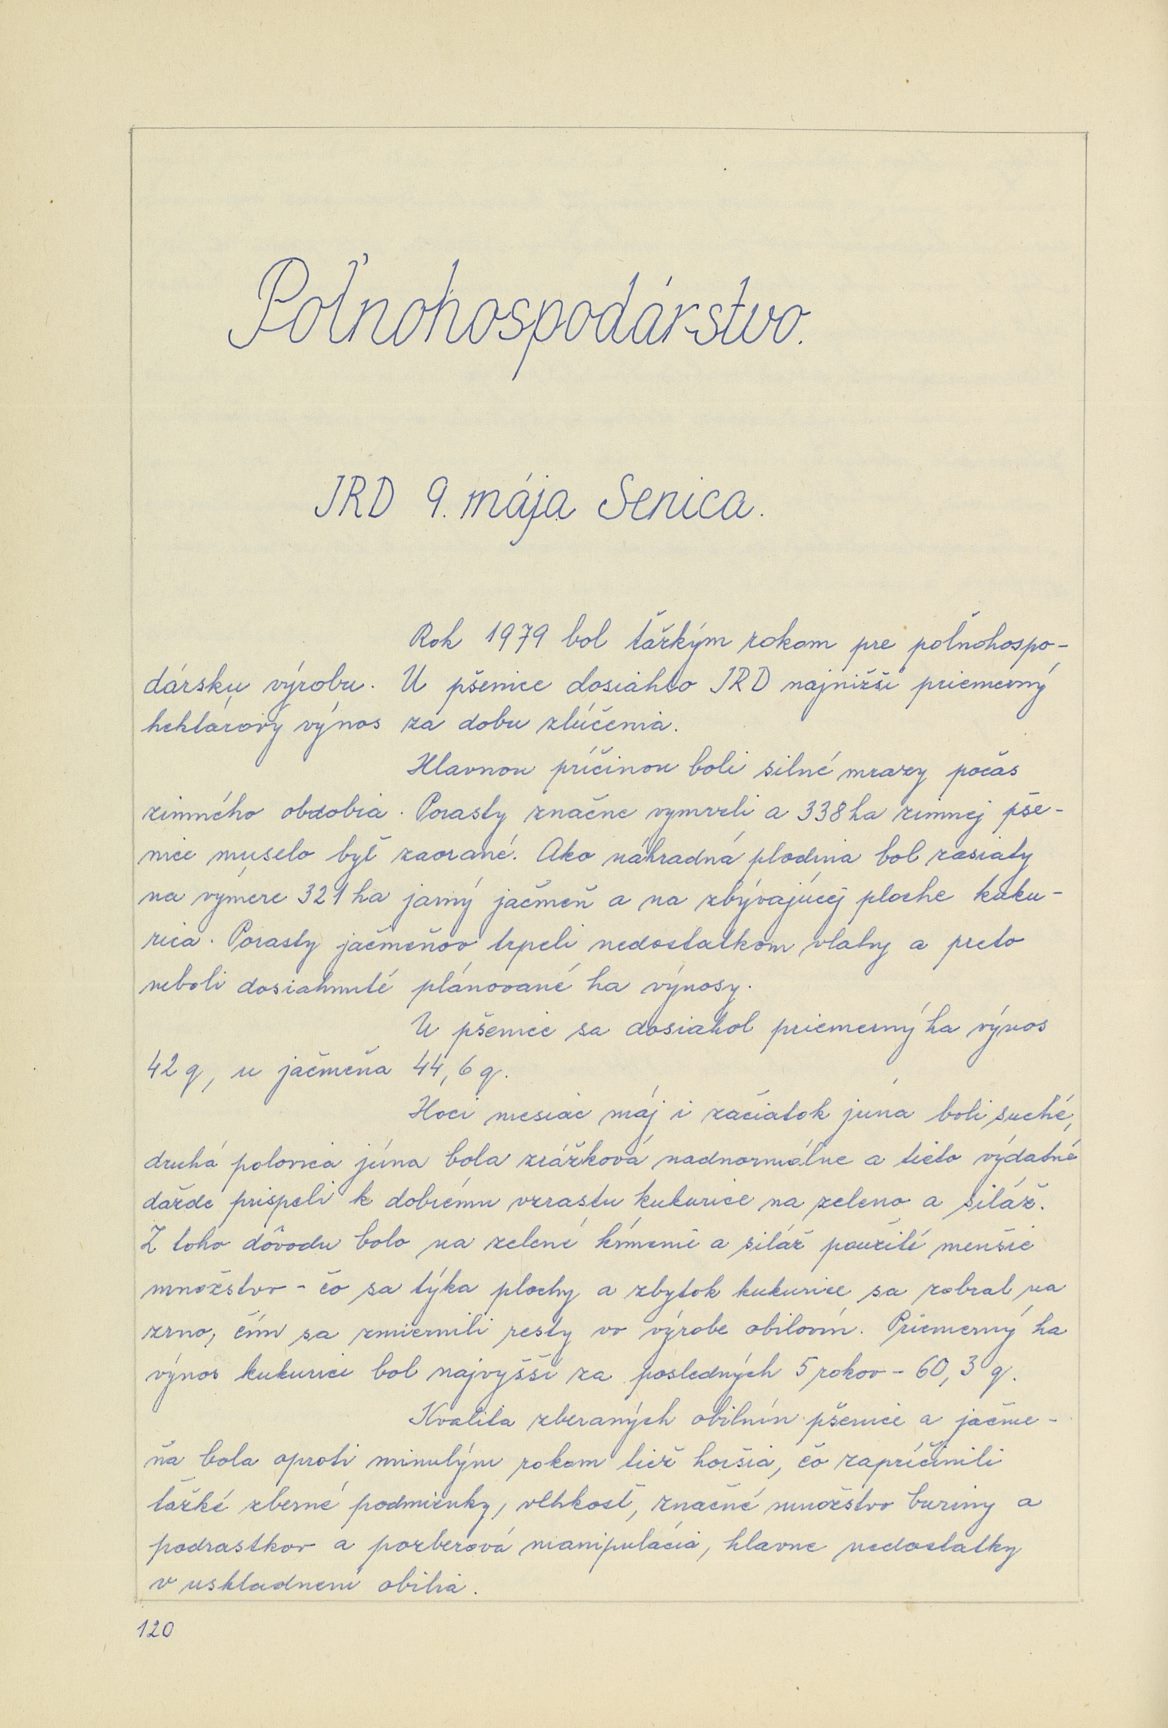 Poľnohospodárstvo.
JRD 9. mája Senica.
Rok 1979 bol ťažkým rokom pre poľnohospo-
dársku výrobu. U pšenice dosiahlo JRD najnižší priemerný
hektárový výnos za dobu zlúčenia.
Hlavnou príčinou boli silné mrazy počas
zimného obdobia. Porasty značne vymrzli a 338 ha zimnej pše-
nice muselo byť zaorané. Ako náhradná plodina bol zasiaty
na výmere 321 ha jarný jačmeň a na zbývajúcej ploche kuku-
rica. Porasty jačmeňov trpeli nedostatkom vlahy a preto
neboli dosiahnuté plánované ha výnosy.
U pšenice sa dosiahol priemerný ha výnos
42 q, u jačmeňa 44,6 q.
Hoci mesiac máj i začiatok júna boli suché,
druhá polovica júna bola zrážková nadnormálne a tieto výdatné
dažde prispeli k dobrému vzrastu kukurice na zeleno a siláž.
Z toho dôvodu bolo na zelené kŕmenie a siláž použité menšie
množstvo - čo sa týka plochy a zbytok kukurice sa zobral na
zrno, čím sa zmiernili resty vo výrobe obilovín. Priemerný ha
výnos kukurice bol najvyšší za posledných 5 rokov - 60,3 q.
Kvalita zberaných obilnín pšenice a jačme-
ňa bola oproti minulým rokom tiež horšia, čo zapríčinili
ťažké zberné podmienky, vlhkosť, značné množstvo buriny a
podrastkov a pozberová manipulácia, hlavne nedostatky
v uskladnení obilia.
120